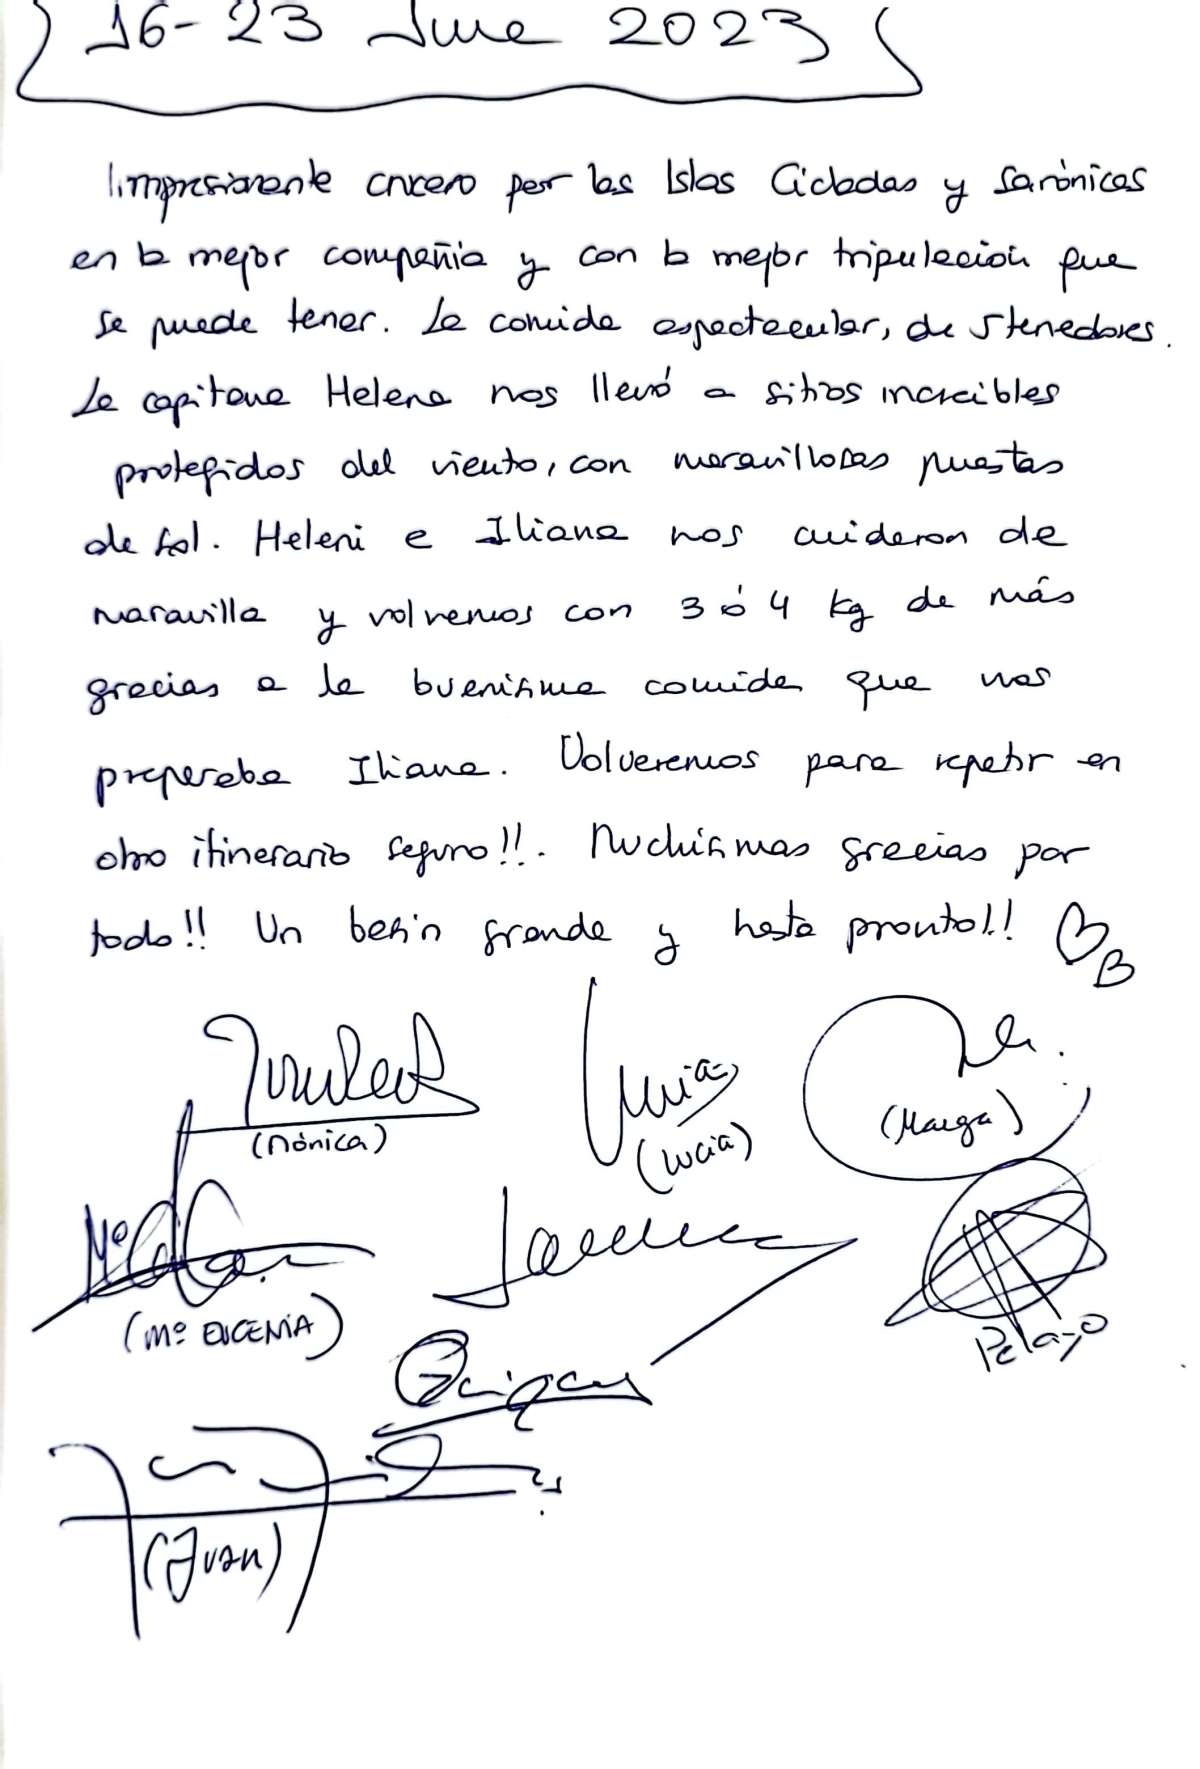 16-23 June 2023
Impresionante crucero por las Islas Cícladas y Sarónicas
en la mejor compañía y con la mejor tripulación que
se puede tener. La comida espectacular, de 5 tenedores.
La capitana Helena nos llevó a sitios increíbles
protegidos del viento, con maravillosas puestas
de sol. Heleni e Iliana nos cuidaron de
maravilla y volvemos con 3 ó 4 kg de más
gracias a la buenísima comida que nos
preparaba Iliana. Volveremos para repetir en
otro itinerario seguro!!. Muchísimas gracias por
todo!! Un besín grande y hasta pronto!!
B
(Mónica)
(Lucía)
(Marga)
(Mª EUGENIA)
Pelayo
(Juan)